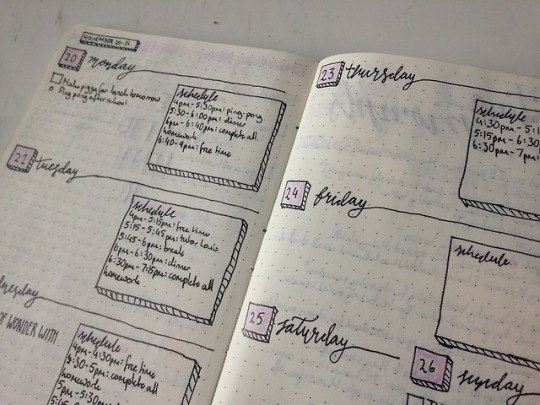 NOVEMBER 20-26
20 monday
Make pizza for lunch tomorrow
Ping pong after school
schedule
4pm-5:30pm: ping pong
5:30-6:00pm: dinner
6pm-6:40pm: complete all
homework
6:40-9pm: free time
21 tuesday
schedule
4pm-5:15pm: free time
5:15-5:45pm: tutor Louis
5:45-6pm: break
6pm-6:30pm: dinner
6:30pm-7:15pm: complete all
homework
OF WONDER WITH
schedule
4pm-4:30pm: free time
4:30-5pm: complete all
homework
5pm-5:30pm
23 thursday
schedule
4:30pm-5:1
5:15pm-6:30
6:30pm-7pm:
24 friday
schedule
25 saturday
26 sunday